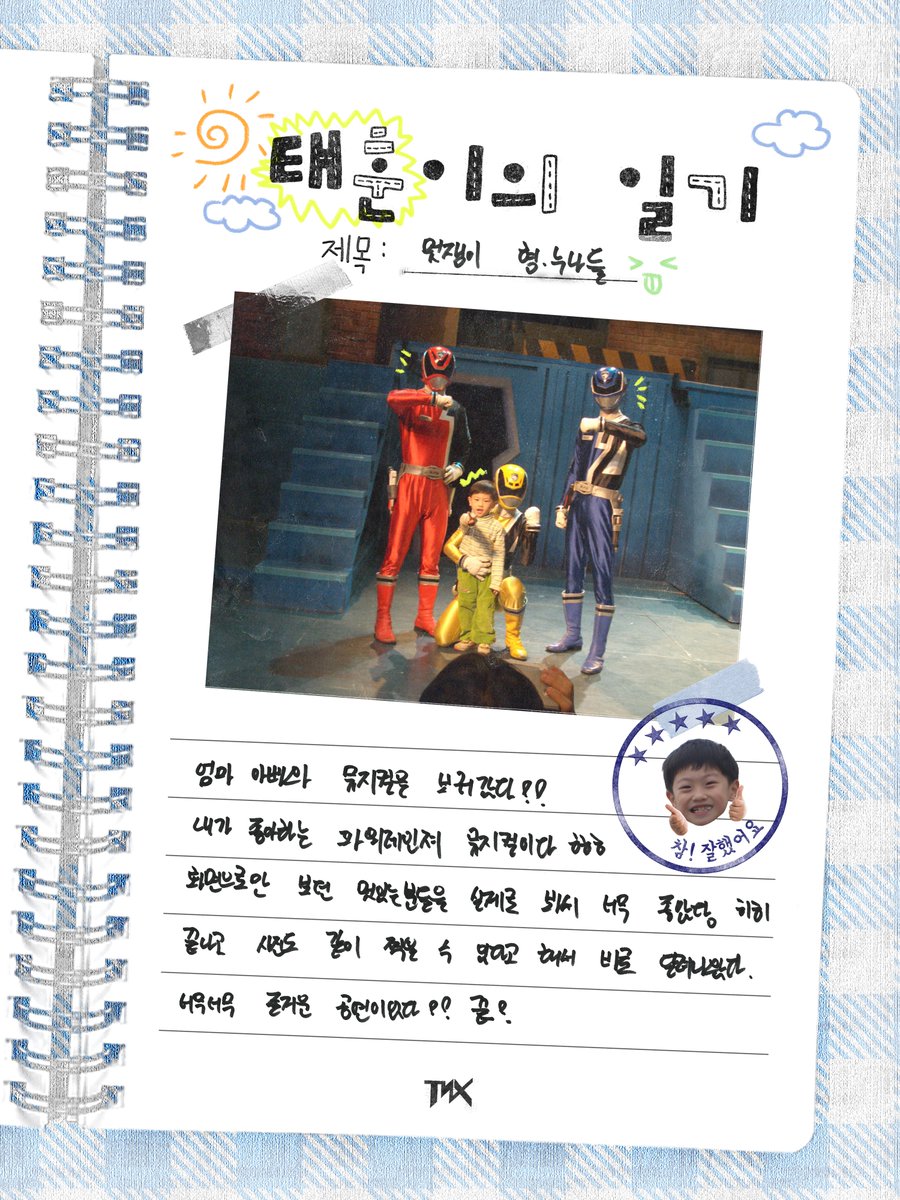 태훈이의 일기
제목: 멋쟁이 형·누나들
엄마 아빠와 뮤지컬을 보러갔다??
내가 좋아하는 파워레인져 뮤지컬이다 하하
화면으로만 보던 멋있는분들을 실제로 봐서 너무 좋았당 히히
끝나고 사진도 같이 찍을 수 있다고 해서 바로 달려나갔다.
너무너무 즐거운 공연이었다?? 끝?
참! 잘했어요
TNX